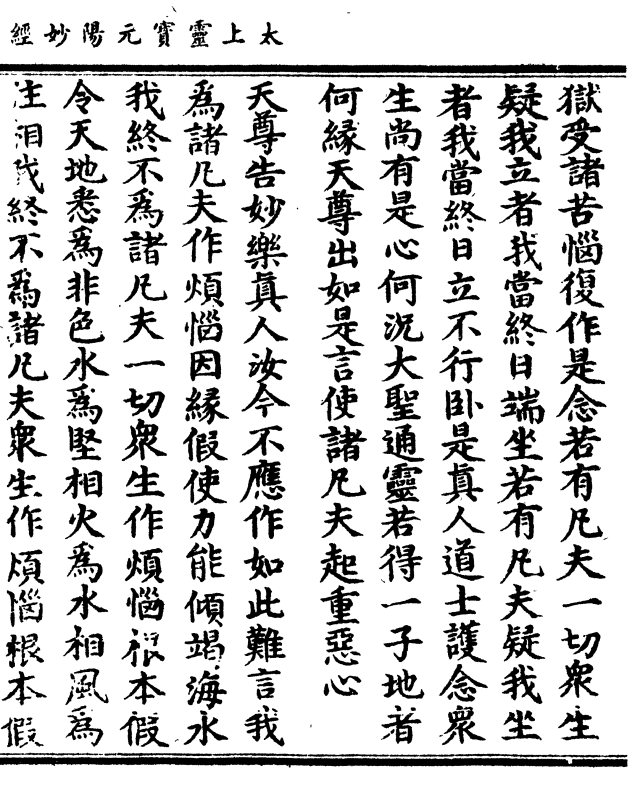 太上靈寶元陽妙經
獄受諸苦惱復作是念若有凡夫一切衆生
疑我立者我當終日端坐若有凡夫疑我坐
者我當終日立不行卧是真人道士護念衆
生尚有是心何況大聖通靈若得一子地者
何緣天尊出如是言使諸凡夫起重惡心
天尊告妙樂真人汝今不應作如此難言我
爲諸凡夫作煩惱因緣假使力能傾竭海水
我終不爲諸凡夫一切衆生作煩惱根本假
令天地悉爲非色水爲堅相火爲水相風爲
住相我終不爲諸凡夫衆生作煩惱根本假